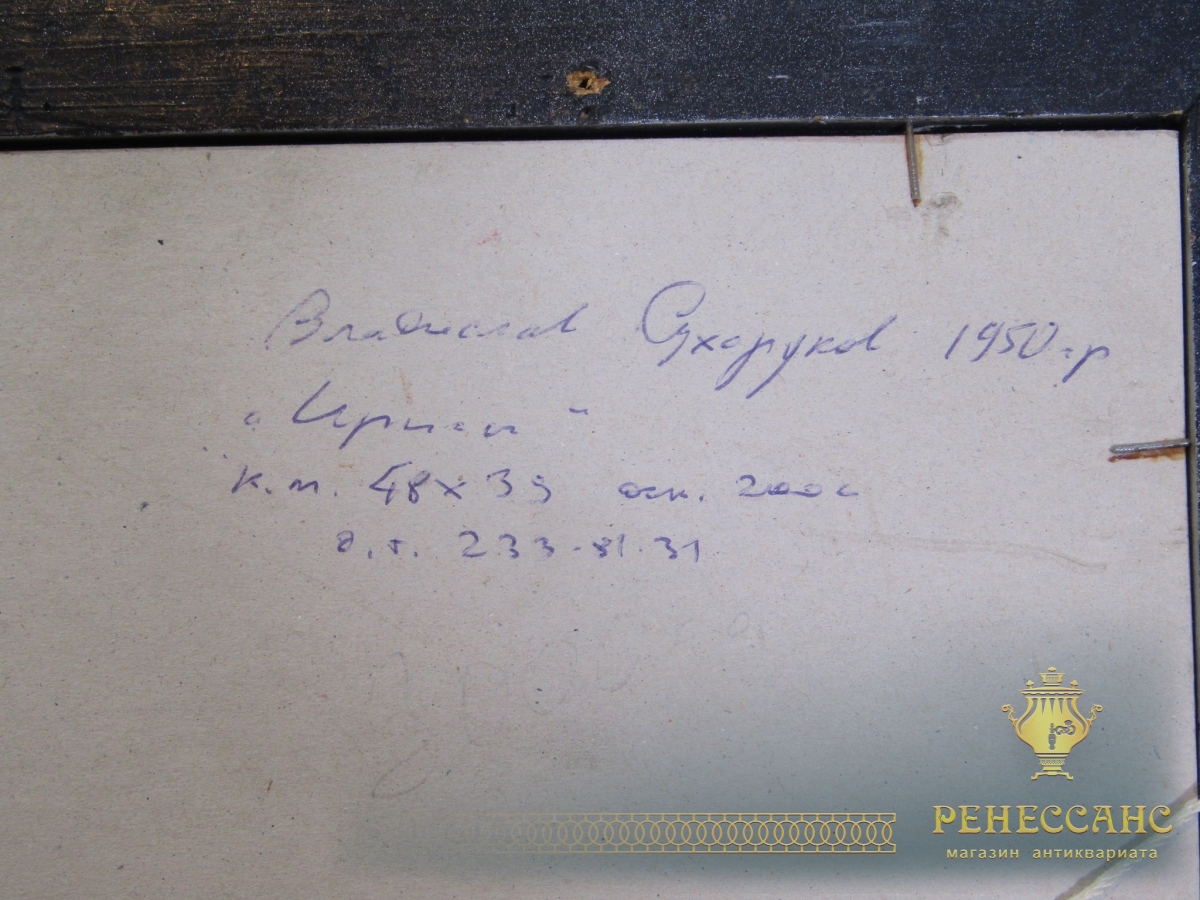 Владислав Сухоруков 1950 г.р
"Ирисы"
к.м. 48x39 осн. 2000с
д.т. 233-81-31
РЕНЕССАНС
магазин антиквариата